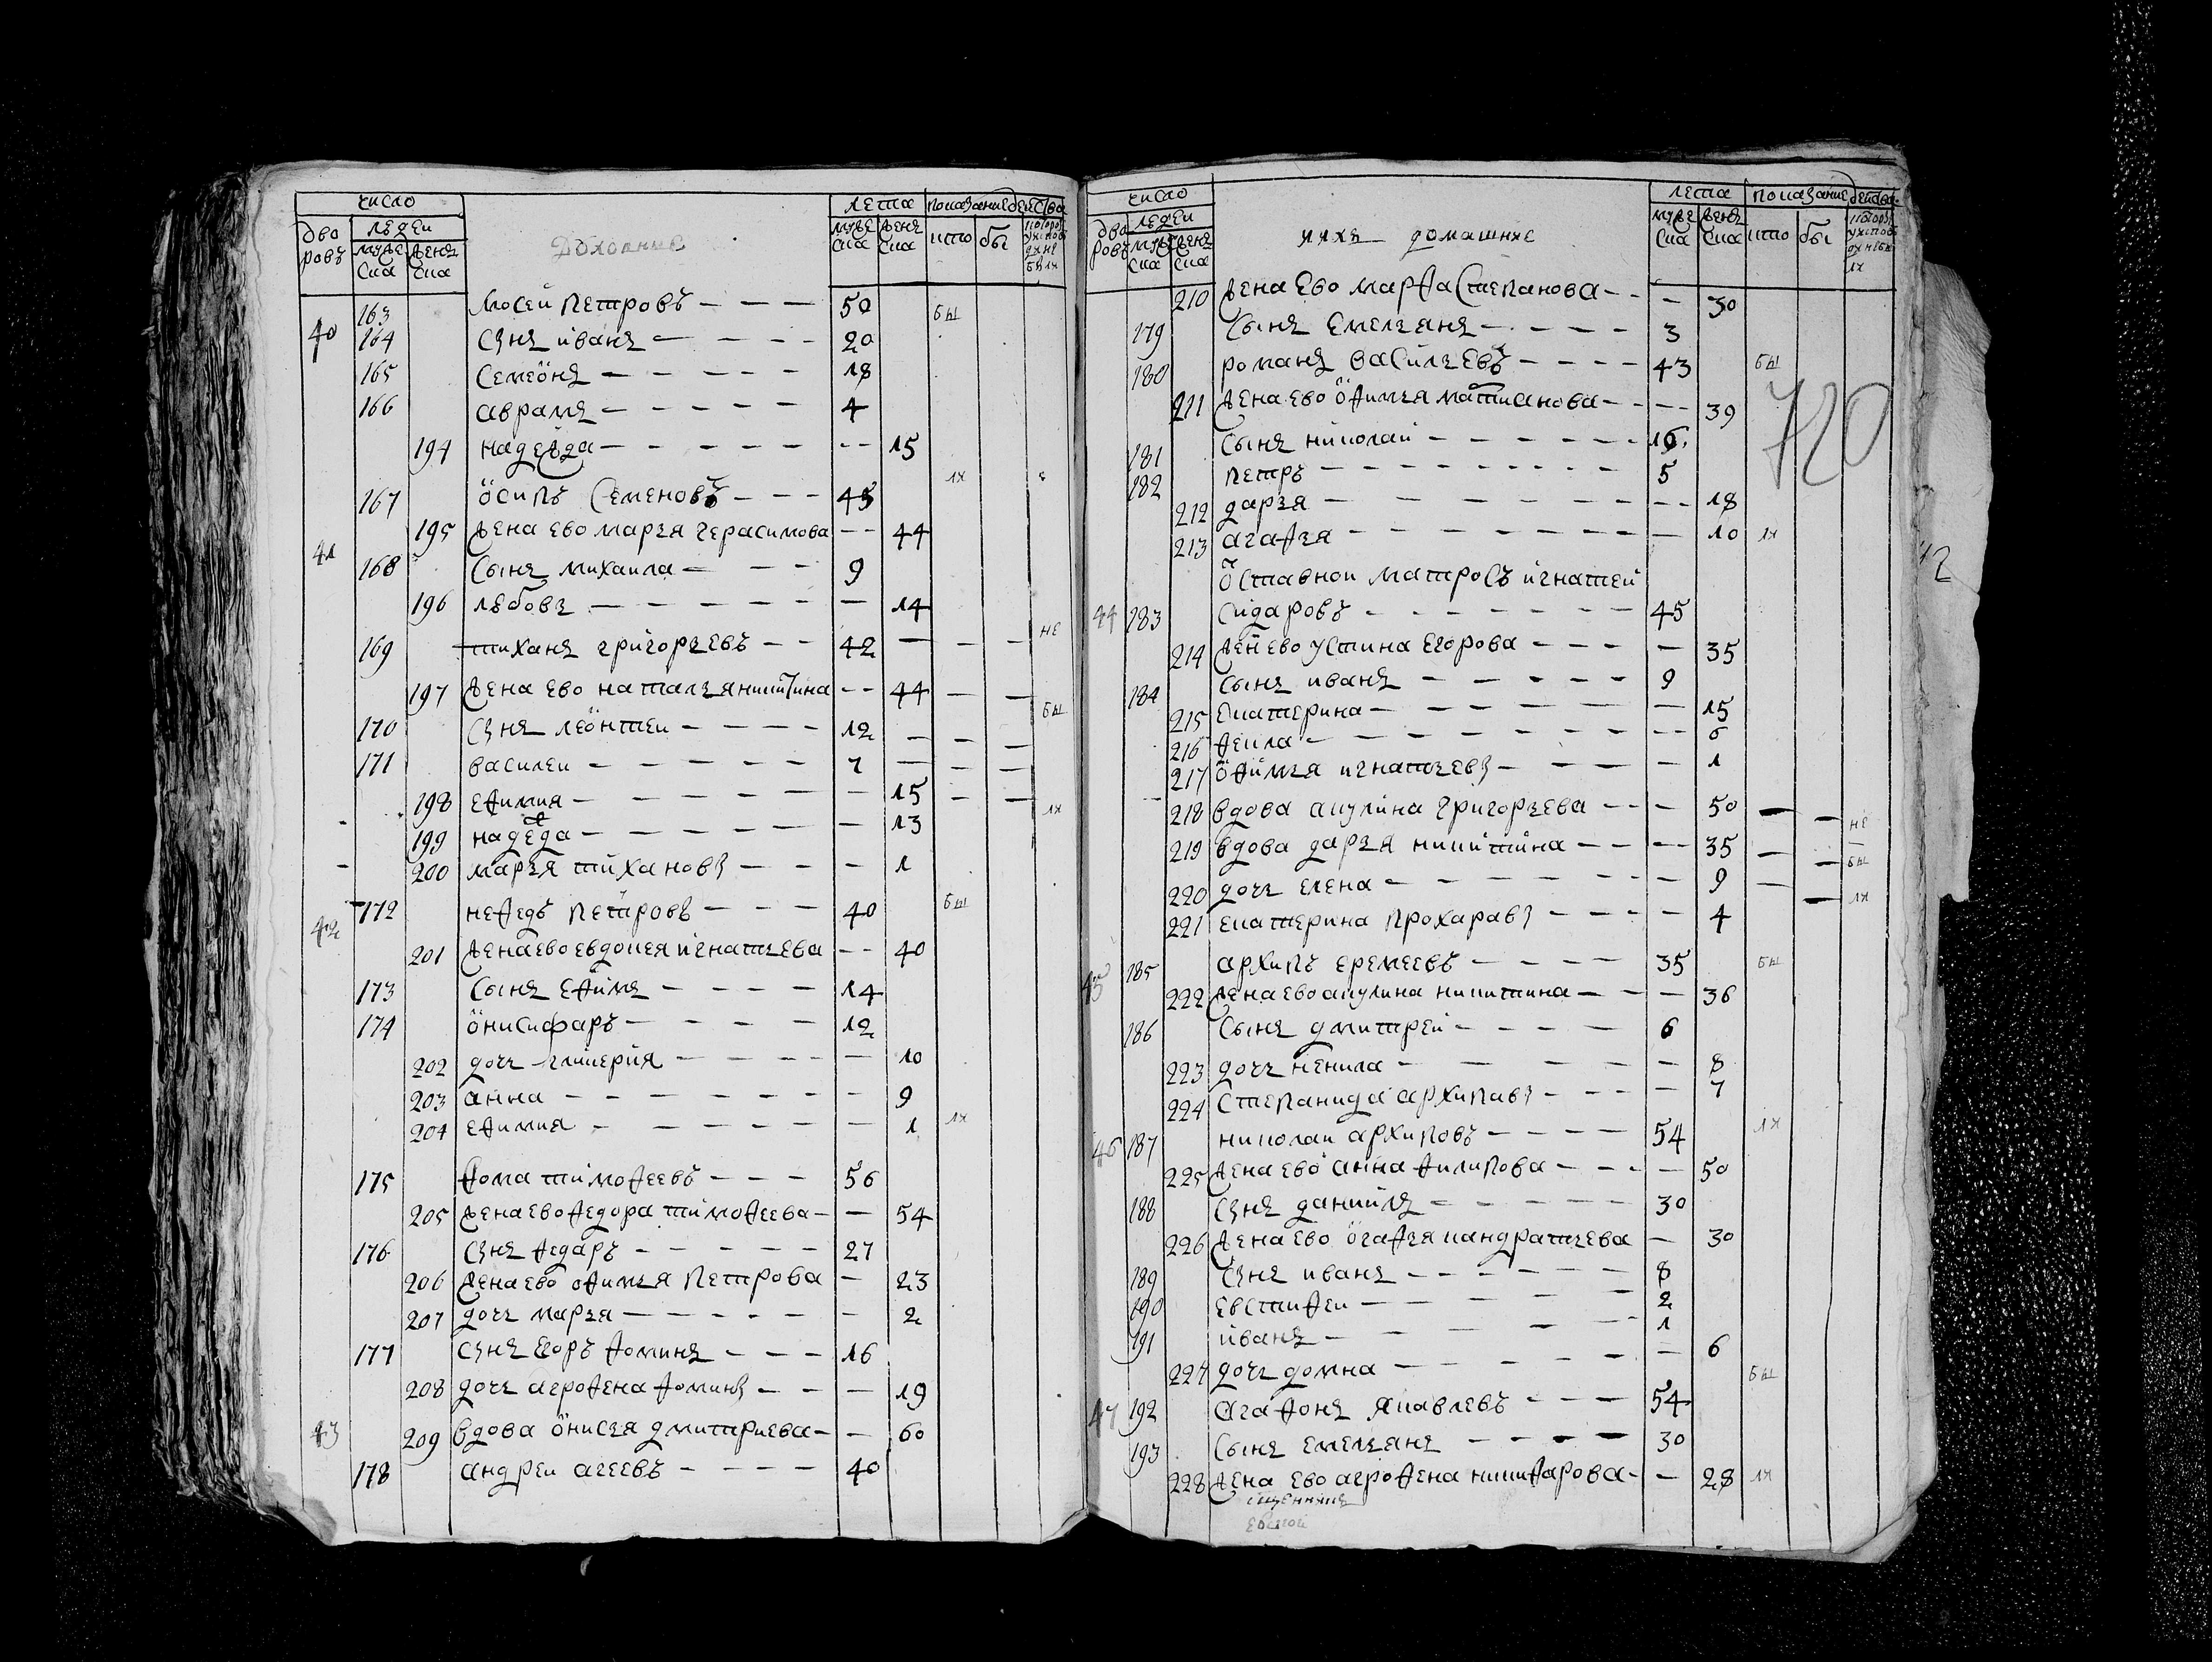 число
лета показание действа
дво ровъ людеи
муже ска женс ска
муже ска женс ска кто обы
163 Мосеи Петровъ 50 бы
40 164 Снъ иванъ 20
165 Семеонъ 18
166 аврамъ 4
194 надежда 15
ли
167 осипъ Семеновъ 45
195 жена ево марья герасимова 44
41
168 Сынъ михаила 9
196 любовь 14
не
169 тиханъ григорьевъ 42
197 жена ево наталья никитина 44
бы
170 Снъ леонтеи 12
171 василеи 7
198 ефимия 15
ли
199 надеда 13
200 марья тихановъ 1
172 нефедъ Петровъ 40 бы
42
201 жена ево евдокея игнатьева 40
173 Сынъ ефимъ 14
174 онисифаръ 12
202 дочь гликерия 10
203 анна 9
204 ефимия 1 ли
175 фома тимофеевъ 56
205 жена ево федора тимофеева 54
176 Снъ федаръ 27
206 жена ево офимья Петрова 23
207 дочь марья 2
177 Снъ егоръ фоминъ 16
208 дочь агрофена фомин 19
43 209 вдова онисья дмитриева 60
178 андреи агеевъ 40
число
лета показание действа
дво ровъ людеи
муже ска женс ска
ихъ домашние
муже ска женс ска кто обы
210 жена ево марфа Степанова 30
179 Сынъ Емельянъ 3
180 романъ васильевъ 43 бы
720
211 жена ево офимья матианова 39
181 Сынъ николаи 16
182 Петръ 5
212 дарья 18
213 агафья 10 ли
отставнои матросъ игнатеи
44 183 Сидаровъ 45
214 жен ево устина Егорова 35
184 Сынъ иванъ 9
215 Екатерина 15
216 фекла 6
217 офимья игнатьев 1
218 вдова акулина григорьева 50 не
219 вдова дарья никитина 35 бы
220 дочь елена 9 ли
221 екатерина Прохарав 4
45 185 архипъ еремеевъ 35 бы
222 жена ево акулина никитина 36
186 Сынъ дмитреи 6
223 дочь ненила 8
224 Степанида архипав 7
46 187 николаи архиповъ 54 ли
225 жена ево анна филипова 50
188 Снъ даниилъ 30
226 жена ево огафья кандратьева 30
189 Снъ иванъ 8
190 евстифеи 2
191 иванъ 1
227 дочь домна 6
бы
47 192 агафонъ яковлевъ 54
193 Сынъ емельянъ 30
228 жена ево агрофена никифарова 28 ли